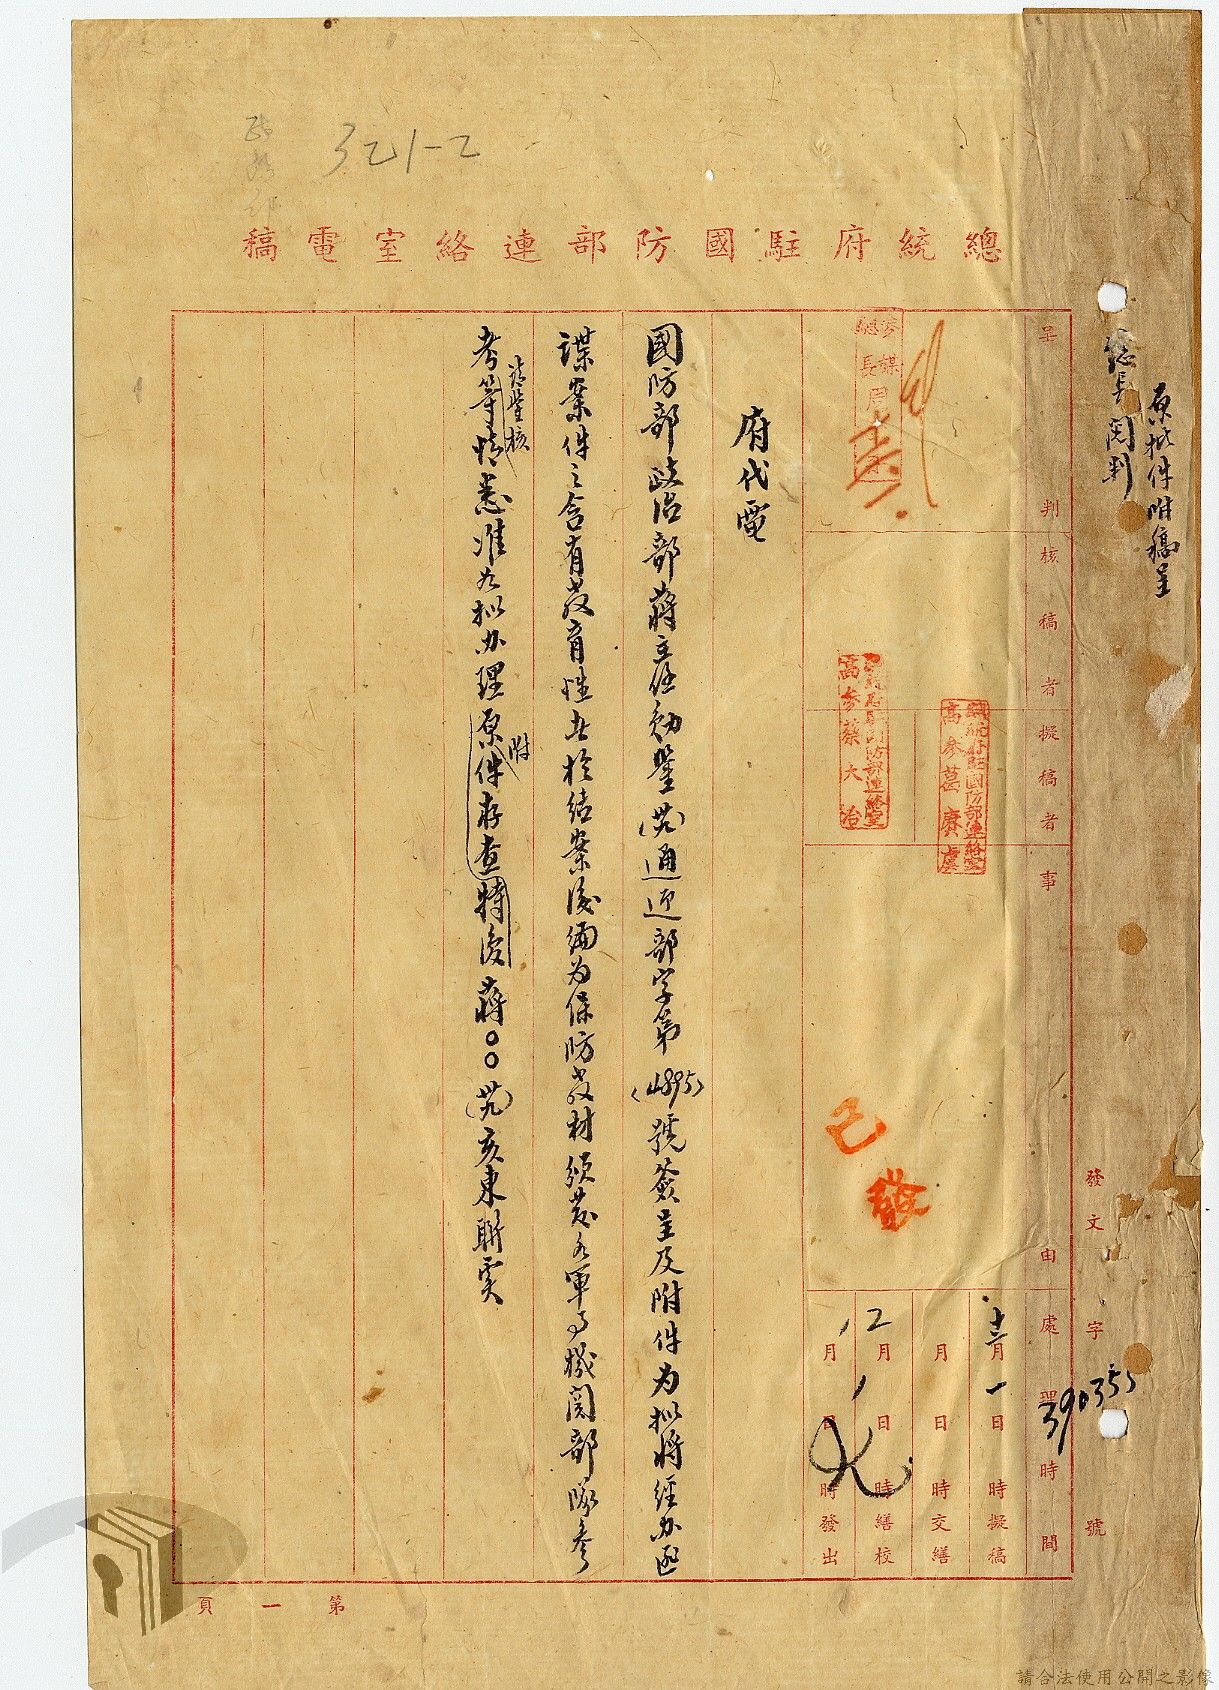 321-2
總統府駐國防部連絡室電稿
原批件附稿呈
總長閱判
發文 字 號
390355
呈判
核稿者
擬稿者
事由
處理時間
參謀總長周
總統府駐國防部連絡室
高參葛賡虞
總統府駐國防部連絡室
高參蔡大治
已發
十二月一日 時擬稿
月 日 時交繕
12月1日 時繕校
月 日 時發出
府代電
國防部政治部蔣主任勛鑒(卅九)通迎部字第(4895)號簽呈及附件為拟將經办匪
諜案件之含有教育性者於結案後編為保防教材頒發各軍事機關部隊參
考等情請鑒核悉准如拟办理原附件存查特復蔣○○(卅九)亥東聯實
第一頁
請合法使用公開之影像